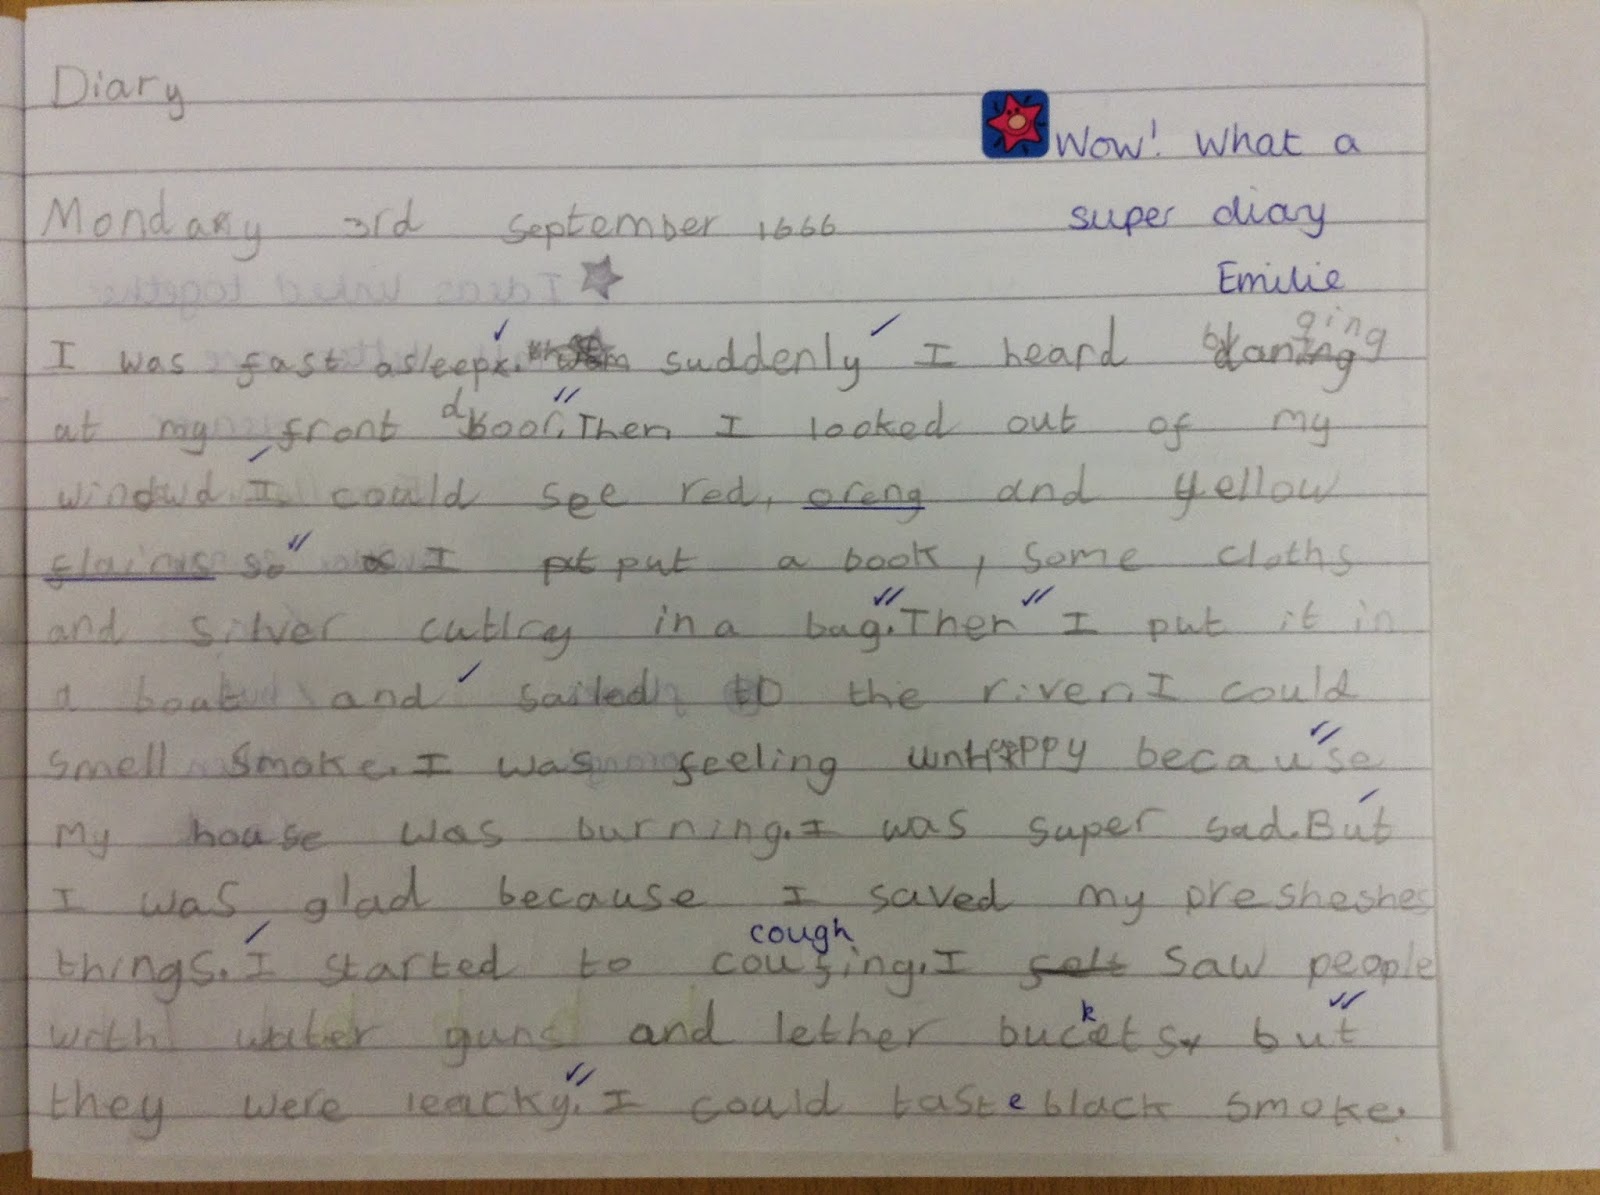 Diary
Wow! What a
super diary
Emilie
Monday 3rd September 1666
I was fast asleep. suddenly I heard banging
at my front door. Then I looked out of my
windwd I could see red, oreng and yellow
flaims so I put a book, some cloths
and silver cutlry in a bag. Then I put it in
a boat and sailed to the river. I could
smell smoke. I was feeling unhappy because
my house was burning. I was super sad. But
I was glad because I saved my presheshes
cough
things. I started to coufing. I felt saw people
with water guns and lether buckets but
they were leacky. I could taste black smoke.